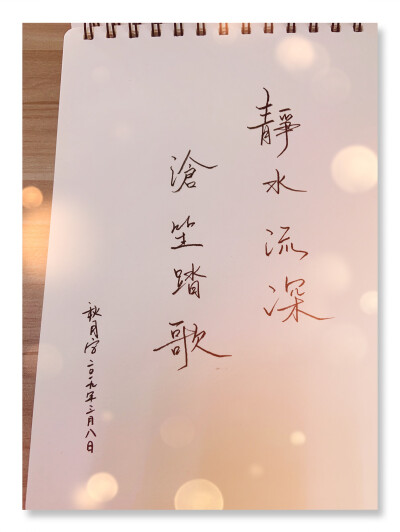 靜水流深
滄笙踏歌
秋月字二〇一九年二月八日